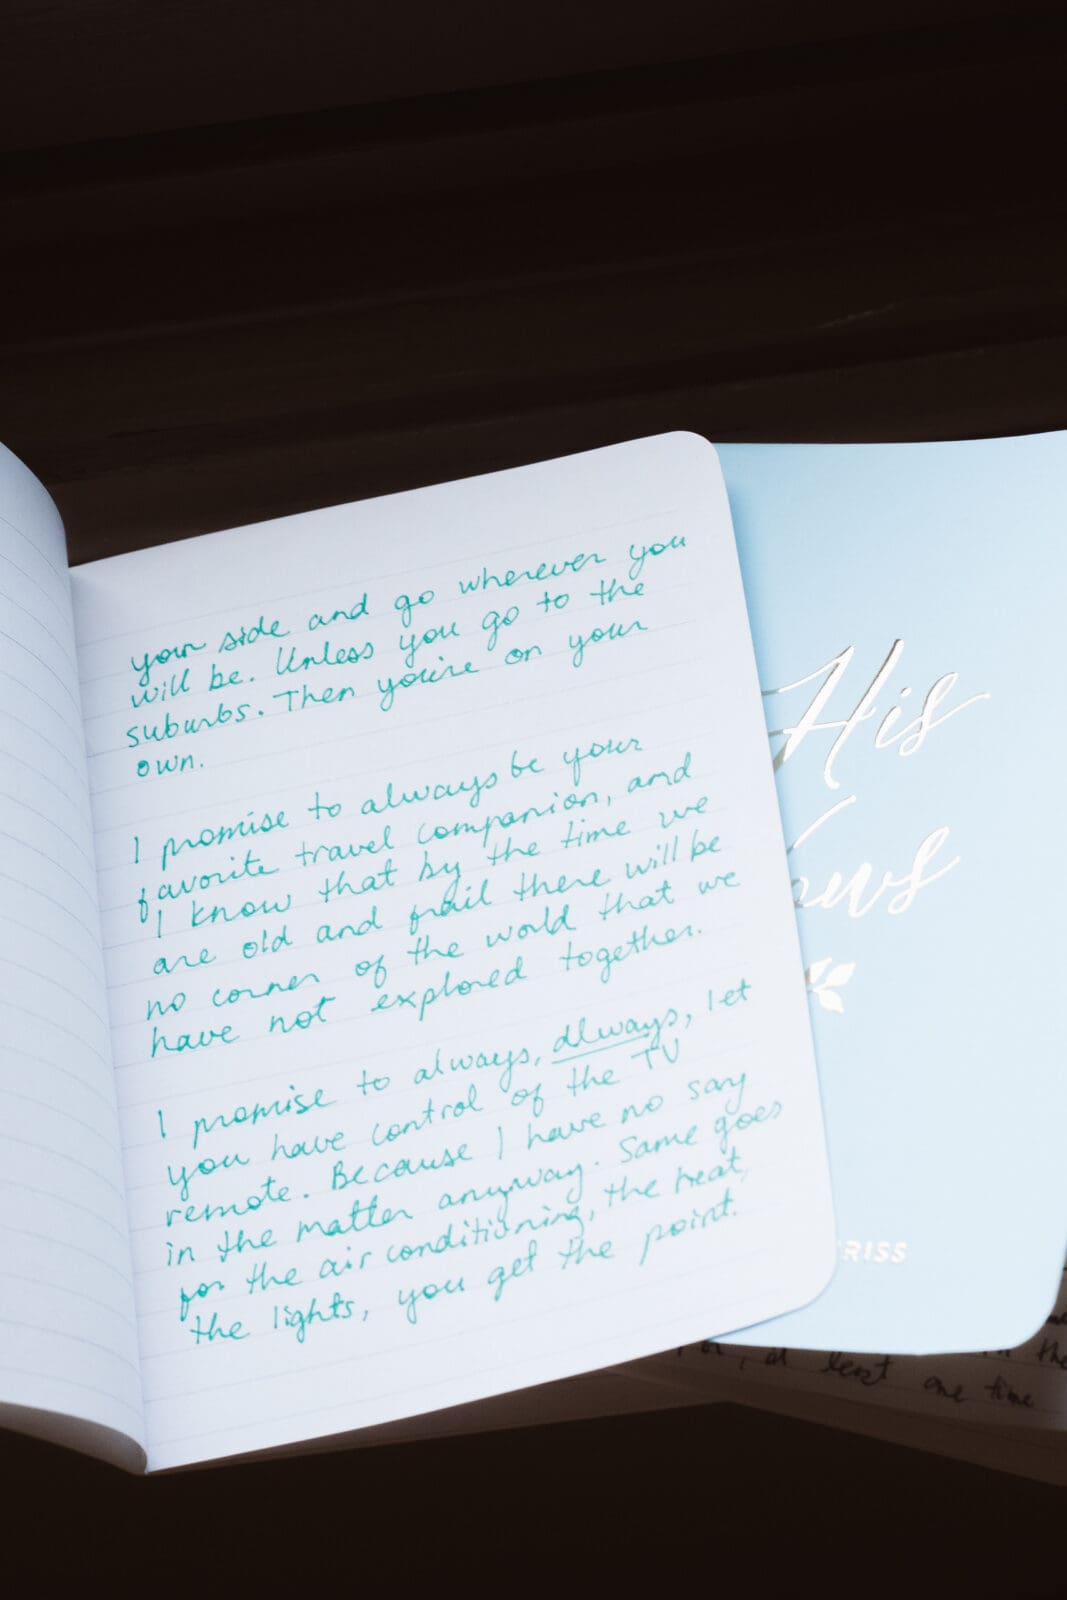 your side and go wherever you
will be. Unless you go to the
suburbs. Then you're on your
own.
I promise to always be your
favorite travel companion, and
I know that by the time we
are old and frail there will be
no corner of the world that we
have not explored together.
I promise to always, always, let
you have control of the TV
remote. Because I have no say
in the matter anyway. Same goes
for the air conditioning, the heat,
the lights, you get the point.
His
ows
RISS
the
at least one time